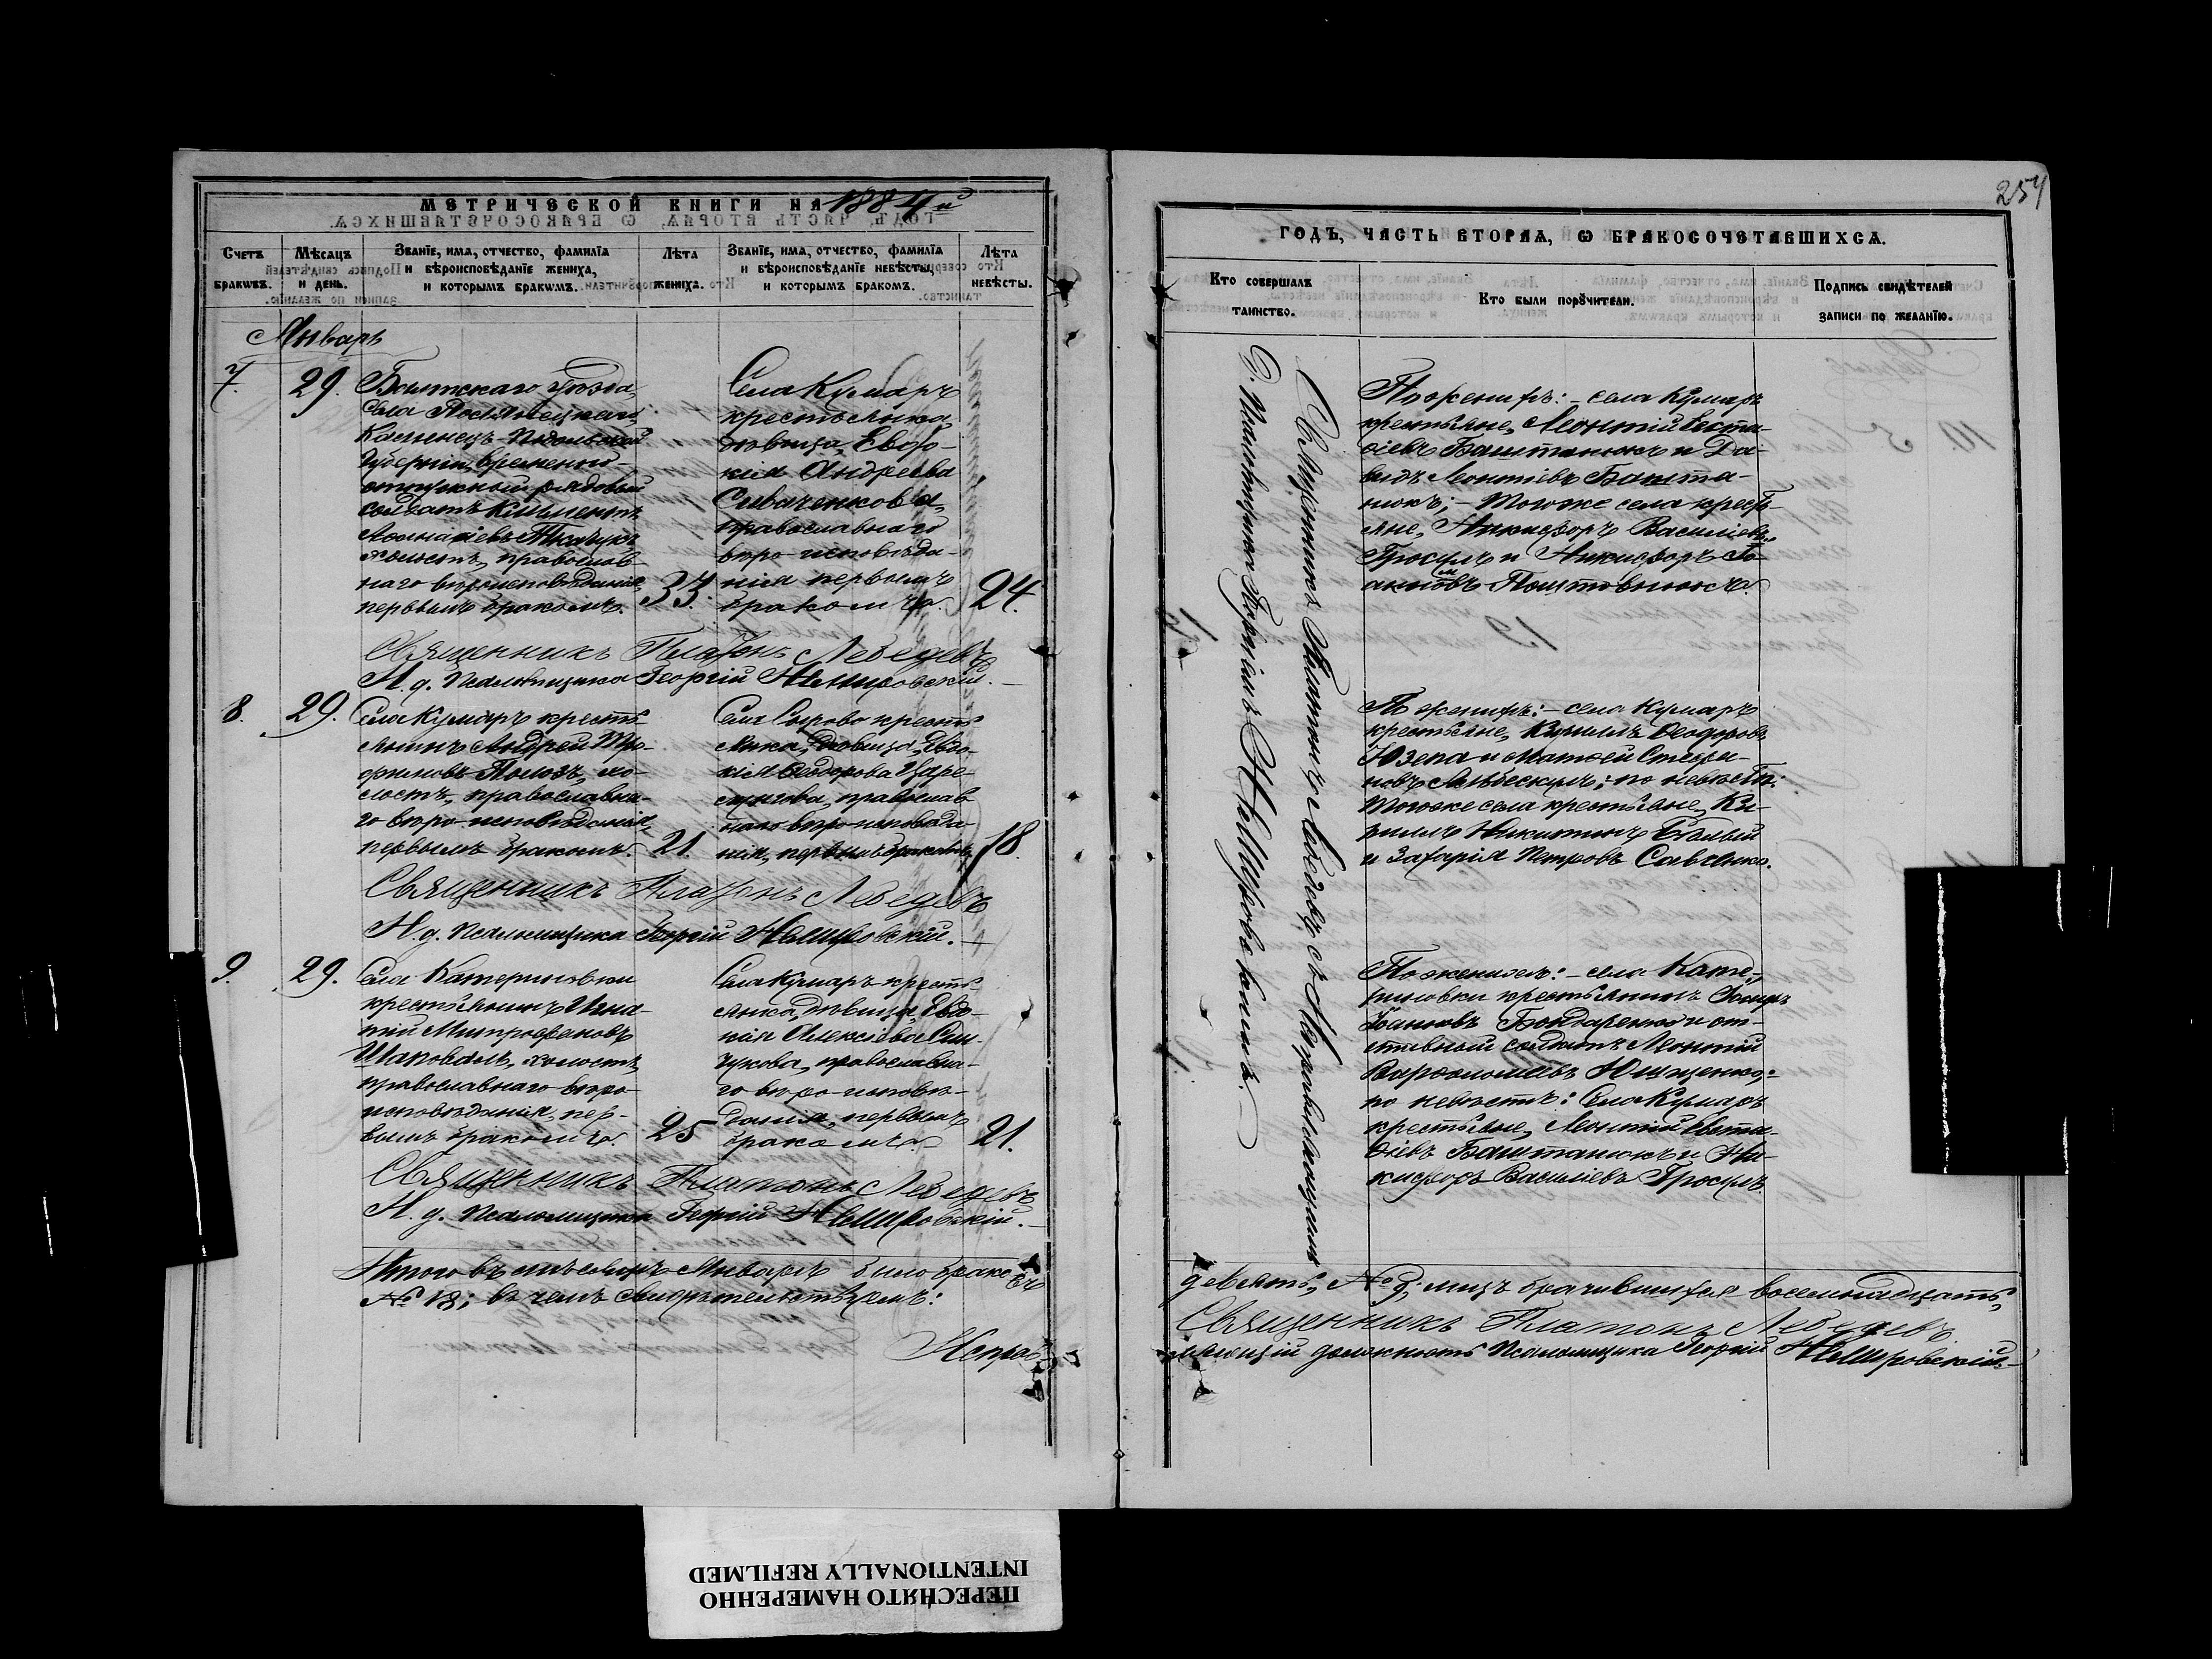 МЕТРИЧЕСКОЙ КНИГИ НА 1884й
Счетъ браковъ.
Мѣсяцъ и день.
Званіе, имя, отчество, фамилія и вѣроисповѣданіе жениха, и которымъ бракомъ.
Лѣта жениха.
Званіе, имя, отчество, фамилія и вѣроисповѣданіе невѣсты, и которымъ бракомъ.
Лѣта невѣсты.
Январь
7.
29.
Балтскаго уѣзда,
села
Каменецъ-Подольской
губерніи, временно-
отпускный рядовый
солдатъ Климентъ
Ткачукъ
холостъ, православ-
наго вѣроисповѣданія,
первымъ бракомъ.
33.
Села Кумаръ
крестьянка,
дѣвица, Евдо-
кія Андреева
Сиваченкова,
православнаго
вѣро-исповѣда-
нія первымъ
бракомъ.
24.
Священникъ Платонъ Лебедевъ
И. д. Псаломщика Георгій Немировскій.
8.
29.
Села Кумаръ кресть-
янинъ Андрей Тро-
фимовъ Полозъ, хо-
лостъ, православна-
го вѣро-исповѣданія,
первымъ бракомъ.
21.
Села Сырово кресть-
янка, дѣвица, Евдо-
кія Ѳеодорова
православ-
наго вѣро-исповѣда-
нія, первымъ бракомъ
18.
Священникъ Платонъ Лебедевъ
И. д. Псаломщика Георгій Немировскій.
9.
29.
Села Катериновки
крестьянинъ Игна-
тій Митрофановъ
Шаповалъ, холостъ,
православнаго вѣро-
исповѣданія, пер-
вымъ бракомъ
25
Села Кумаръ кресть-
янка, дѣвица, Евдо-
кія Алексіева
православна-
го вѣро-исповѣ-
данія, первымъ
бракомъ.
21.
Священникъ Платонъ Лебедевъ
И. д. Псаломщика Георгій Немировскій.
Итого въ мѣсяцѣ Январѣ было браковъ
въ чемъ свидѣтельствуемъ:
Исправ-
254
ГОДЪ, ЧАСТЬ ВТОРАЯ, Ѡ БРАКОСОЧЕТАВШИХСЯ.
Кто совершалъ таинство.
Кто были поручители.
Подпись свидѣтелей записи по желанію.
Священникъ Платонъ Лебедевъ съ Исправляющимъ
д. Псаломщика Георгіемъ Немировскимъ.
По женихѣ: - села Кумаръ
крестьяне, Леонтій Евста-
ѳіевъ Баштанюкъ и Да-
видъ Леонтіевъ Башта-
нюкъ; - того же села кресть-
яне, Никифоръ Василіевъ
Гросулъ и Никифоръ Іо-
акимовъ
По женихѣ: - села Кумаръ
крестьяне, Кириллъ Ѳеодоровъ
Юзепа и Матѳей Стефа-
новъ по невѣстѣ:
того же села крестьяне, Ки-
риллъ Никитинъ Бѣлый
и Захарія Петровъ Савенко.
По женихѣ: - села Кате-
риновки крестьянинъ
Ивановъ Бондаренко и от-
ставный солдатъ Леонтій
Варѳоломеевъ Ющенко;
по невѣстѣ: Села Кумаръ
крестьяне, Леонтій Евста-
ѳіевъ Баштанюкъ и Ни-
кифоръ Василіевъ Гросулъ.
девять, № 9, лицъ брачившихся восемнадцать,
Священникъ Платонъ Лебедевъ
ляющій должность Псаломщика Георгій Немировскій
ПЕРЕСНЯТО НАМЕРЕННО
INTENTIONALLY REFILMED